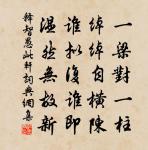 一梁對一柱
綽綽自橫陳
誰拟復誰即
溫然無故新
釋智愚此軒詞典網集